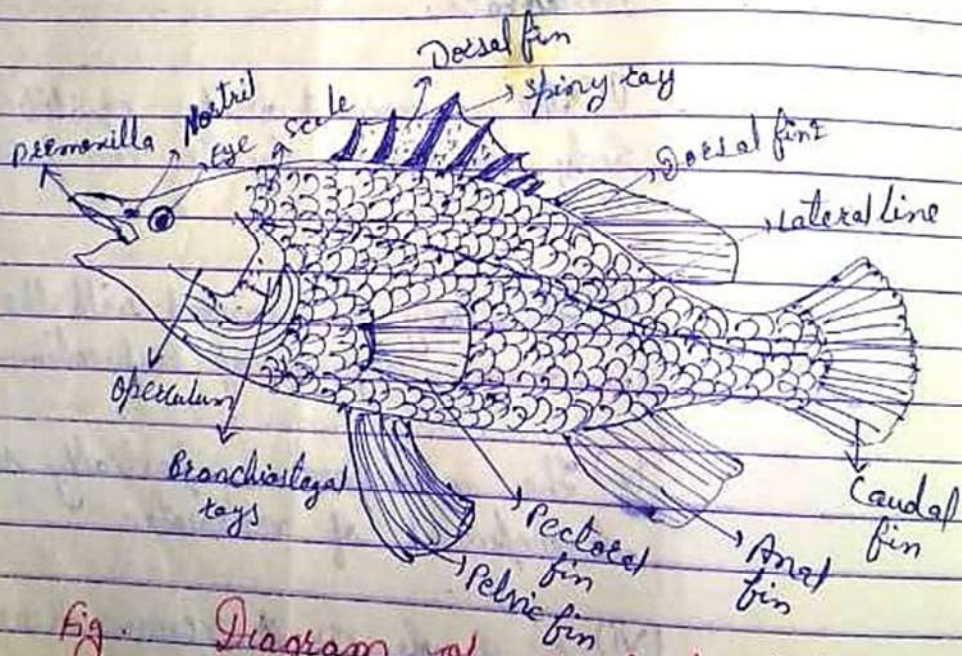 Dorsal fin
Spiny ray
Nostril
Premaxilla
Eye
Scale
Dorsal fin2
Lateral line
Operculum
Branchiostegal
rays
Pectoral
fin
Pelvic fin
Anal
fin
Caudal
fin
Fig. Diagram of